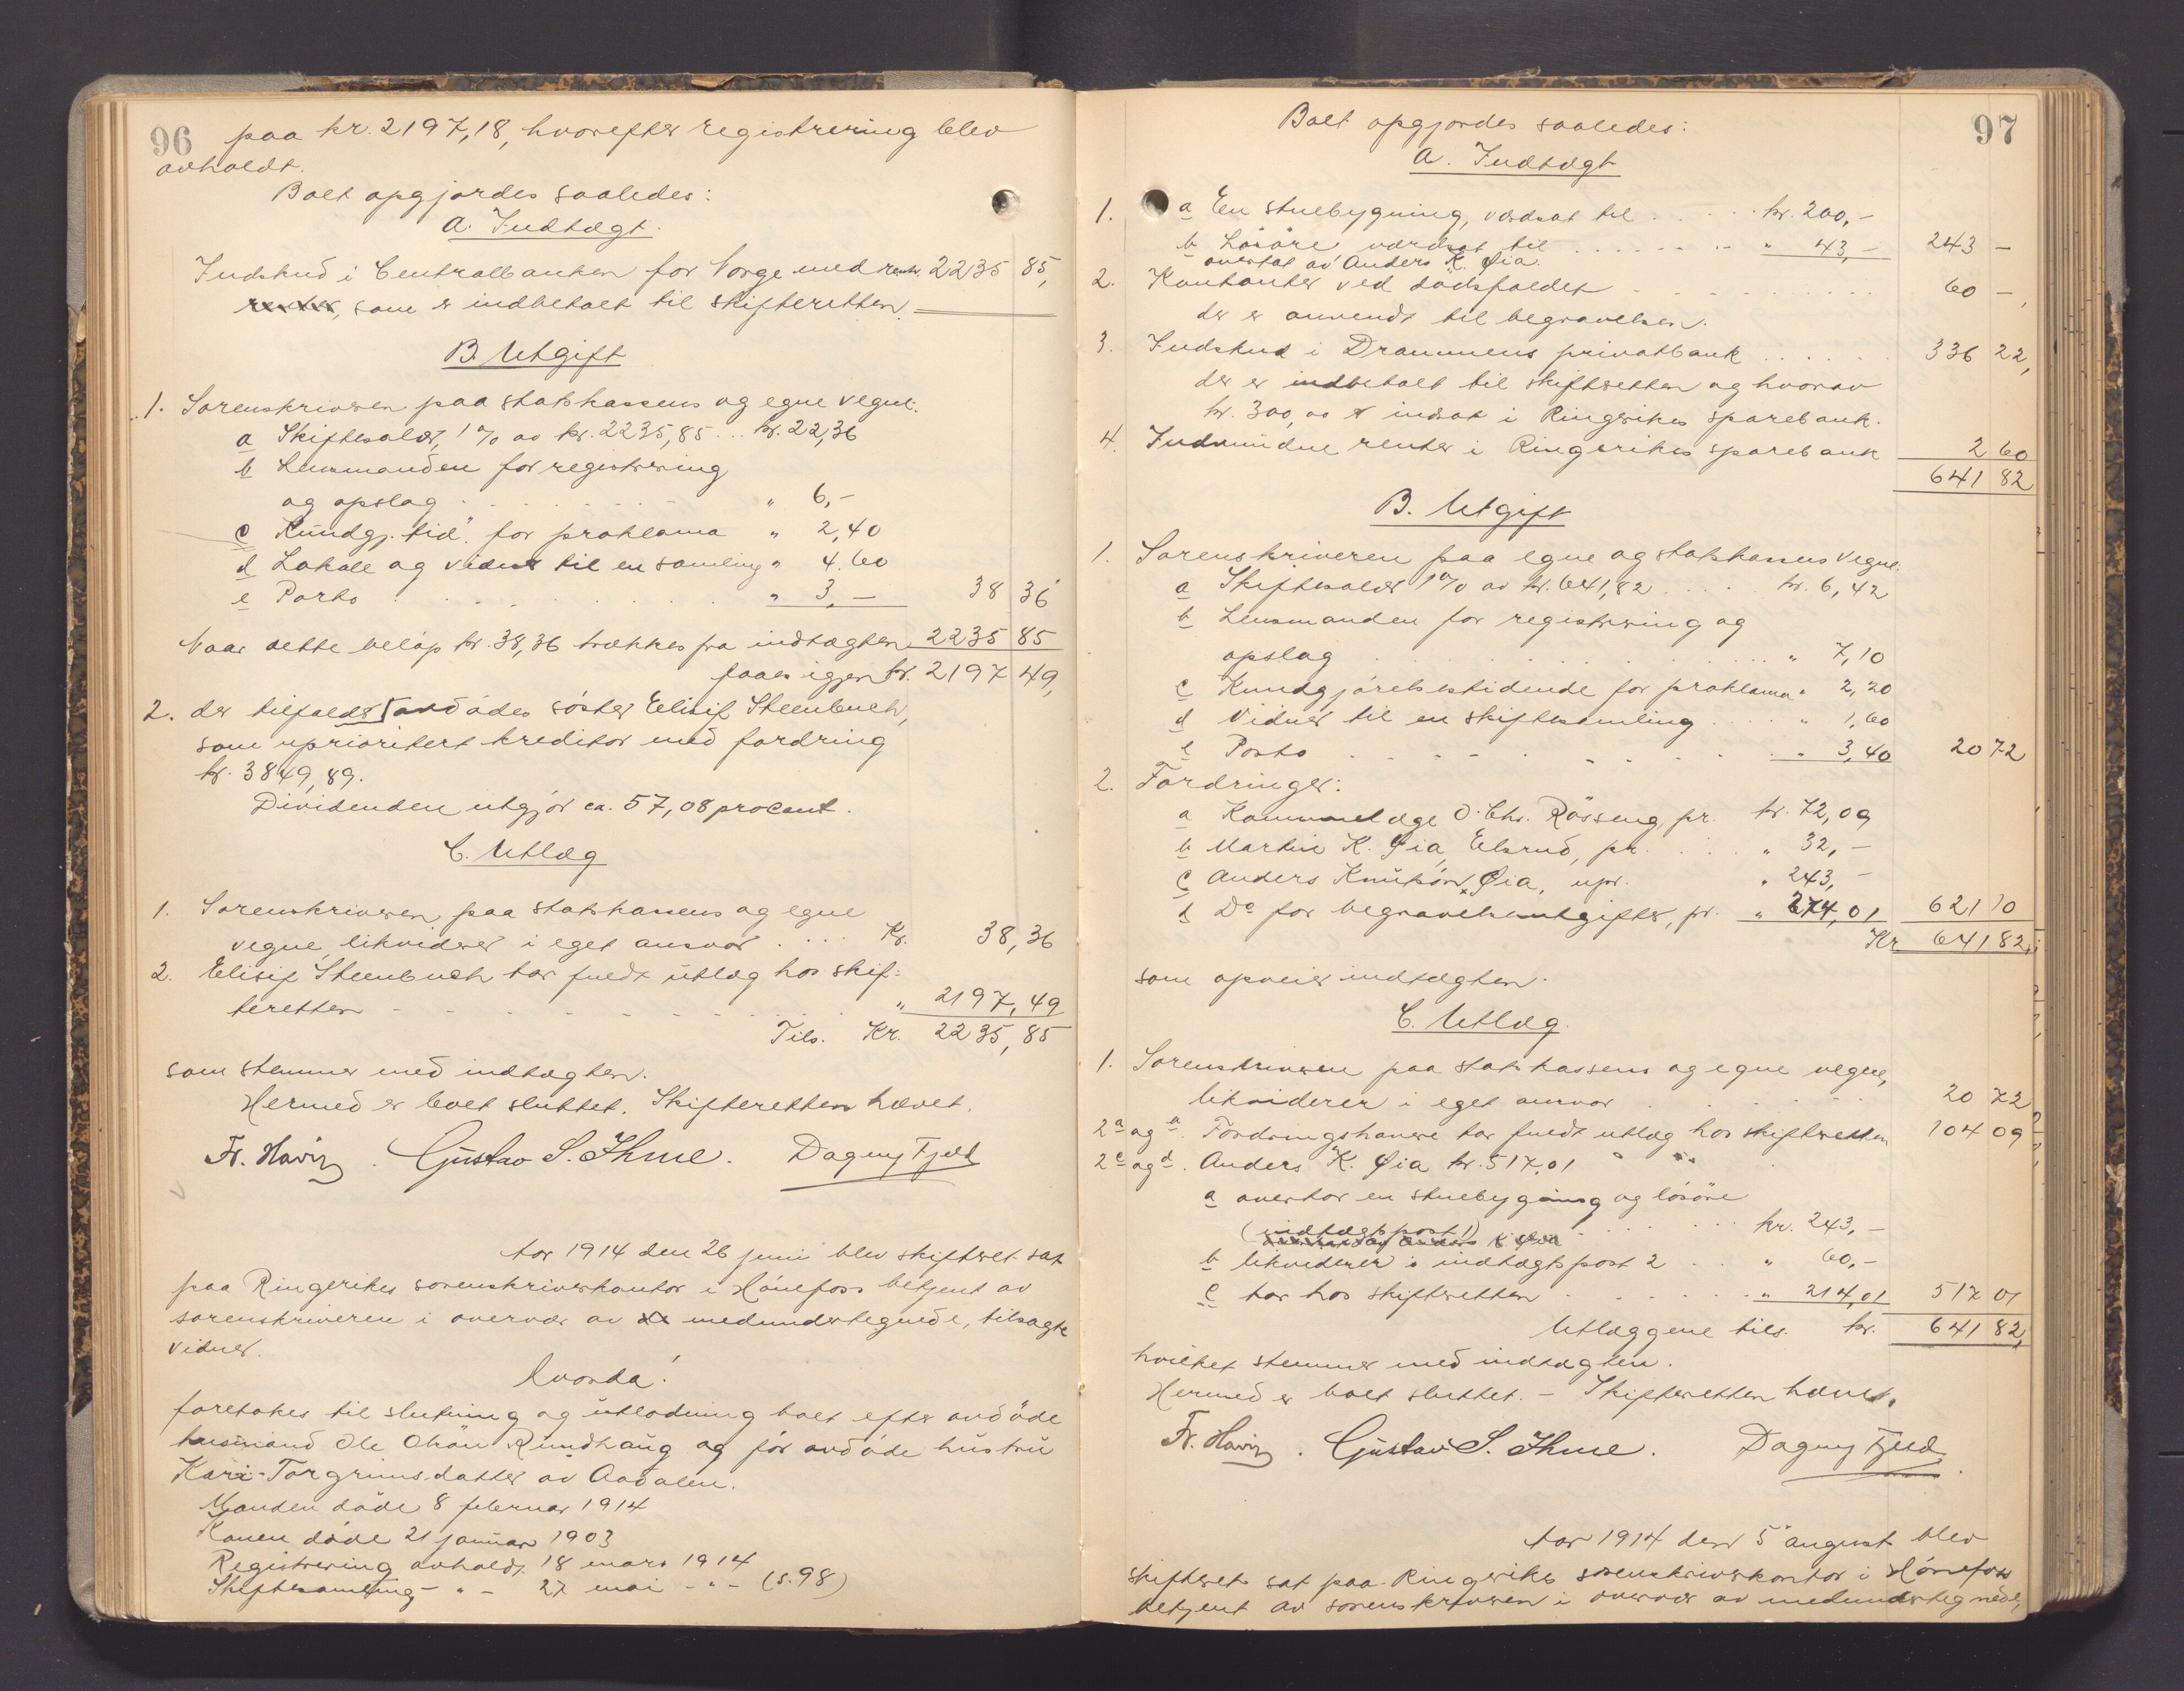 96
paa kr. 2197,18, hvorefter registrering blev
avholdt.
Boet opgjordes saaledes:
A. Indtægt.
Indskud i Centralbanken for Norge med rentr. 2235 85,
renter, som er indbetalt til skifteretten.
B. Utgift
1. Sorenskriveren paa statskassens og egne vegne:
a Skiftesalær, 1% av kr. 2235,85 ... kr. 22,36
b Lensmanden for registrering
og opslag . . . . . " 6,-
c Kundgj. tid. for proklama " 2,40
d Lokale og vidner til en samling " 4.60
e Porto . . . . . . " 3,- 38 36
Naar dette beløp kr. 38,36 trækkes fra indtægten 2235 85
faaes igjen kr. 2197 49,
2. der tilfalder avdødes søster Elisif Steenbuch,
som uprioritert kreditor med fordring
kr. 3849,89.
Dividenden utgjør ca. 57,08 procent.
C. Utlæg
1. Sorenskriveren paa statskassens og egne
vegne, likviderer i eget ansvar . . . . Kr. 38,36
2. Elisif Steenbuch tar fuldt utlæg hos skif-
teretten - - - - - - - " 2197,49
Tils. Kr. 2235,85
som stemmer med indtægten.
Hermed er boet sluttet. Skifteretten hævet.
Fr. Gustav S. Ihme. Dagny Fjeld
Aar 1914 den 26 juni blev skifteret sat
paa Ringerikes sorenskriverkontor i Hønefoss betjent av
sorenskriveren i overvær av medundertegnede, tilsagte
vidner.
Hvorda:
foretokes til slutning og utlodning boet efter avdøde
husmand Ole Olsön Rundhaug og før avdøde hustru
Kari Torgrimsdatter av Aadalen.
Manden døde 8 februar 1914
Konen døde 21 januar 1903
Registrering avholdt 18 mars 1914
Skiftesamling - " - 27 mai - " - (s. 98)
97
Boet opgjordes saaledes:
A. Indtægt
1. a En stuebygning, værdsat til . . . . . kr. 200,-
b Løsøre værdsat til . . . . . . . . " 43,- 243 -
overtat av Anders K. Øia.
2. Kontanter ved dødsfaldet - - - - - 60 -,
der er anvendt til begravelsen.
3. Indskud i Drammens privatbank . . . . . . 336 22,
der er indbetalt til skifteretten og hvorav
kr. 300,00 er indsat i Ringerikes sparebank.
4. Indvundne renter i Ringerikes sparebank 2 60
641 82
B. Utgift
1. Sorenskriveren paa egne og statskassens vegne:
a Skiftesalær 1% av kr. 641,82 . . . . . kr. 6,42
b Lensmanden for registrering og
opslag . . . . . . . . . . . . " 7,10
c Kundgjørelsestidende for proklama " 2,20
d Vidner til en skiftesamling . . . . " 1,60
e Porto - - - - - . - - " 3,40 20 72
2. Fordringer:
a Kommunelæge O. Chr. Røsseng, pr. kr. 72,09
b Martin K. Øia, Elsrud, pr. . . . " 32,-
c Anders Knutsön Øia, upr. " 243,-
d Do for begravelsesutgifter, pr. " 274,01 621 10
Kr 641 82,
som opveier indtægten.
C. Utlæg.
1. Sorenskriveren paa statskassens og egne vegne,
likviderer i eget ansvar . . . . . . 20 72
2 a og b. Fordringshaverne tar fuldt utlæg hos skifteretten 104 09
2 c og d. Anders K. Øia kr. 517,01
a overtar en stuebygning og løsøre
(indtægtspost 1) . . . . . . kr. 243,-
b likviderer i indtægtspost 2 . . " 60,-
c tar hos skifteretten . . . . . . " 214,01 517 01
Utlæggene tils. kr. 641 82,
hvilket stemmer med indtægten.
Hermed er boet sluttet. - Skifteretten hævet.
Fr. Gustav S. Ihme. Dagny Fjeld.
Aar 1914 den 5 august blev
skifteret sat paa Ringerikes sorenskriverkontor i Hønefoss
betjent av sorenskriveren i overvær av medundertegnede,